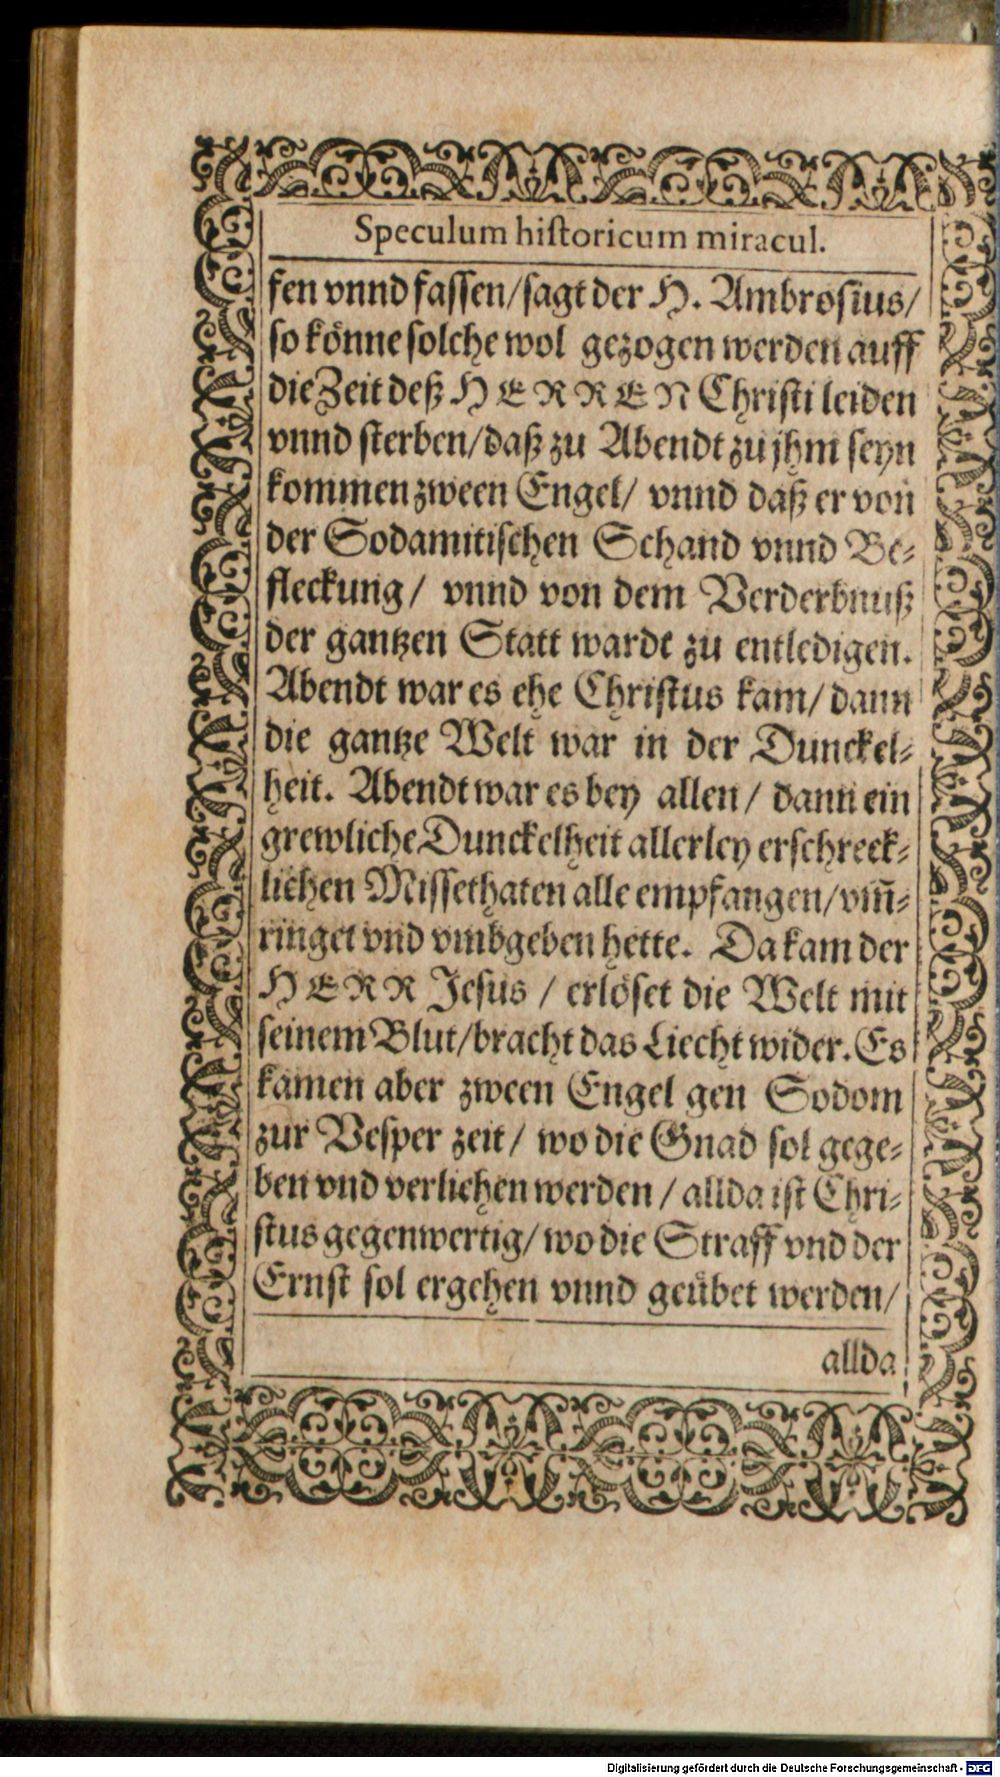 Speculum historicum miracul.
fen vnnd fassen/sagt der H. Ambrosius/
so könne solche wol gezogen werden auff
die Zeit deß HERREN Christi leiden
vnnd sterben/daß zu Abendt zu jhm seyn
kommen zween Engel/ vnnd daß er von
der Sodamitischen Schand vnnd Be-
fleckung/ vnnd von dem Verderbnuß
der gantzen Statt wardt zu entledigen.
Abendt war es ehe Christus kam/ dann
die gantze Welt war in der Dunckel-
heit. Abendt war es bey allen/ dann ein
grewliche Dunckelheit allerley erschreck-
lichen Missethaten alle empfangen/vm̃-
ringet vnd vmbgeben hette. Da kam der
HERR Jesus / erlöset die Welt mit
seinem Blut/bracht das Liecht wider. Es
kamen aber zween Engel gen Sodom
zur Vesper zeit/ wo die Gnad sol gege-
ben vnd verliehen werden / allda ist Chri-
stus gegenwertig/ wo die Straff vnd der
Ernst sol ergehen vnnd geübet werden/
allda
Digitalisierung gefördert durch die Deutsche Forschungsgemeinschaft - DFG